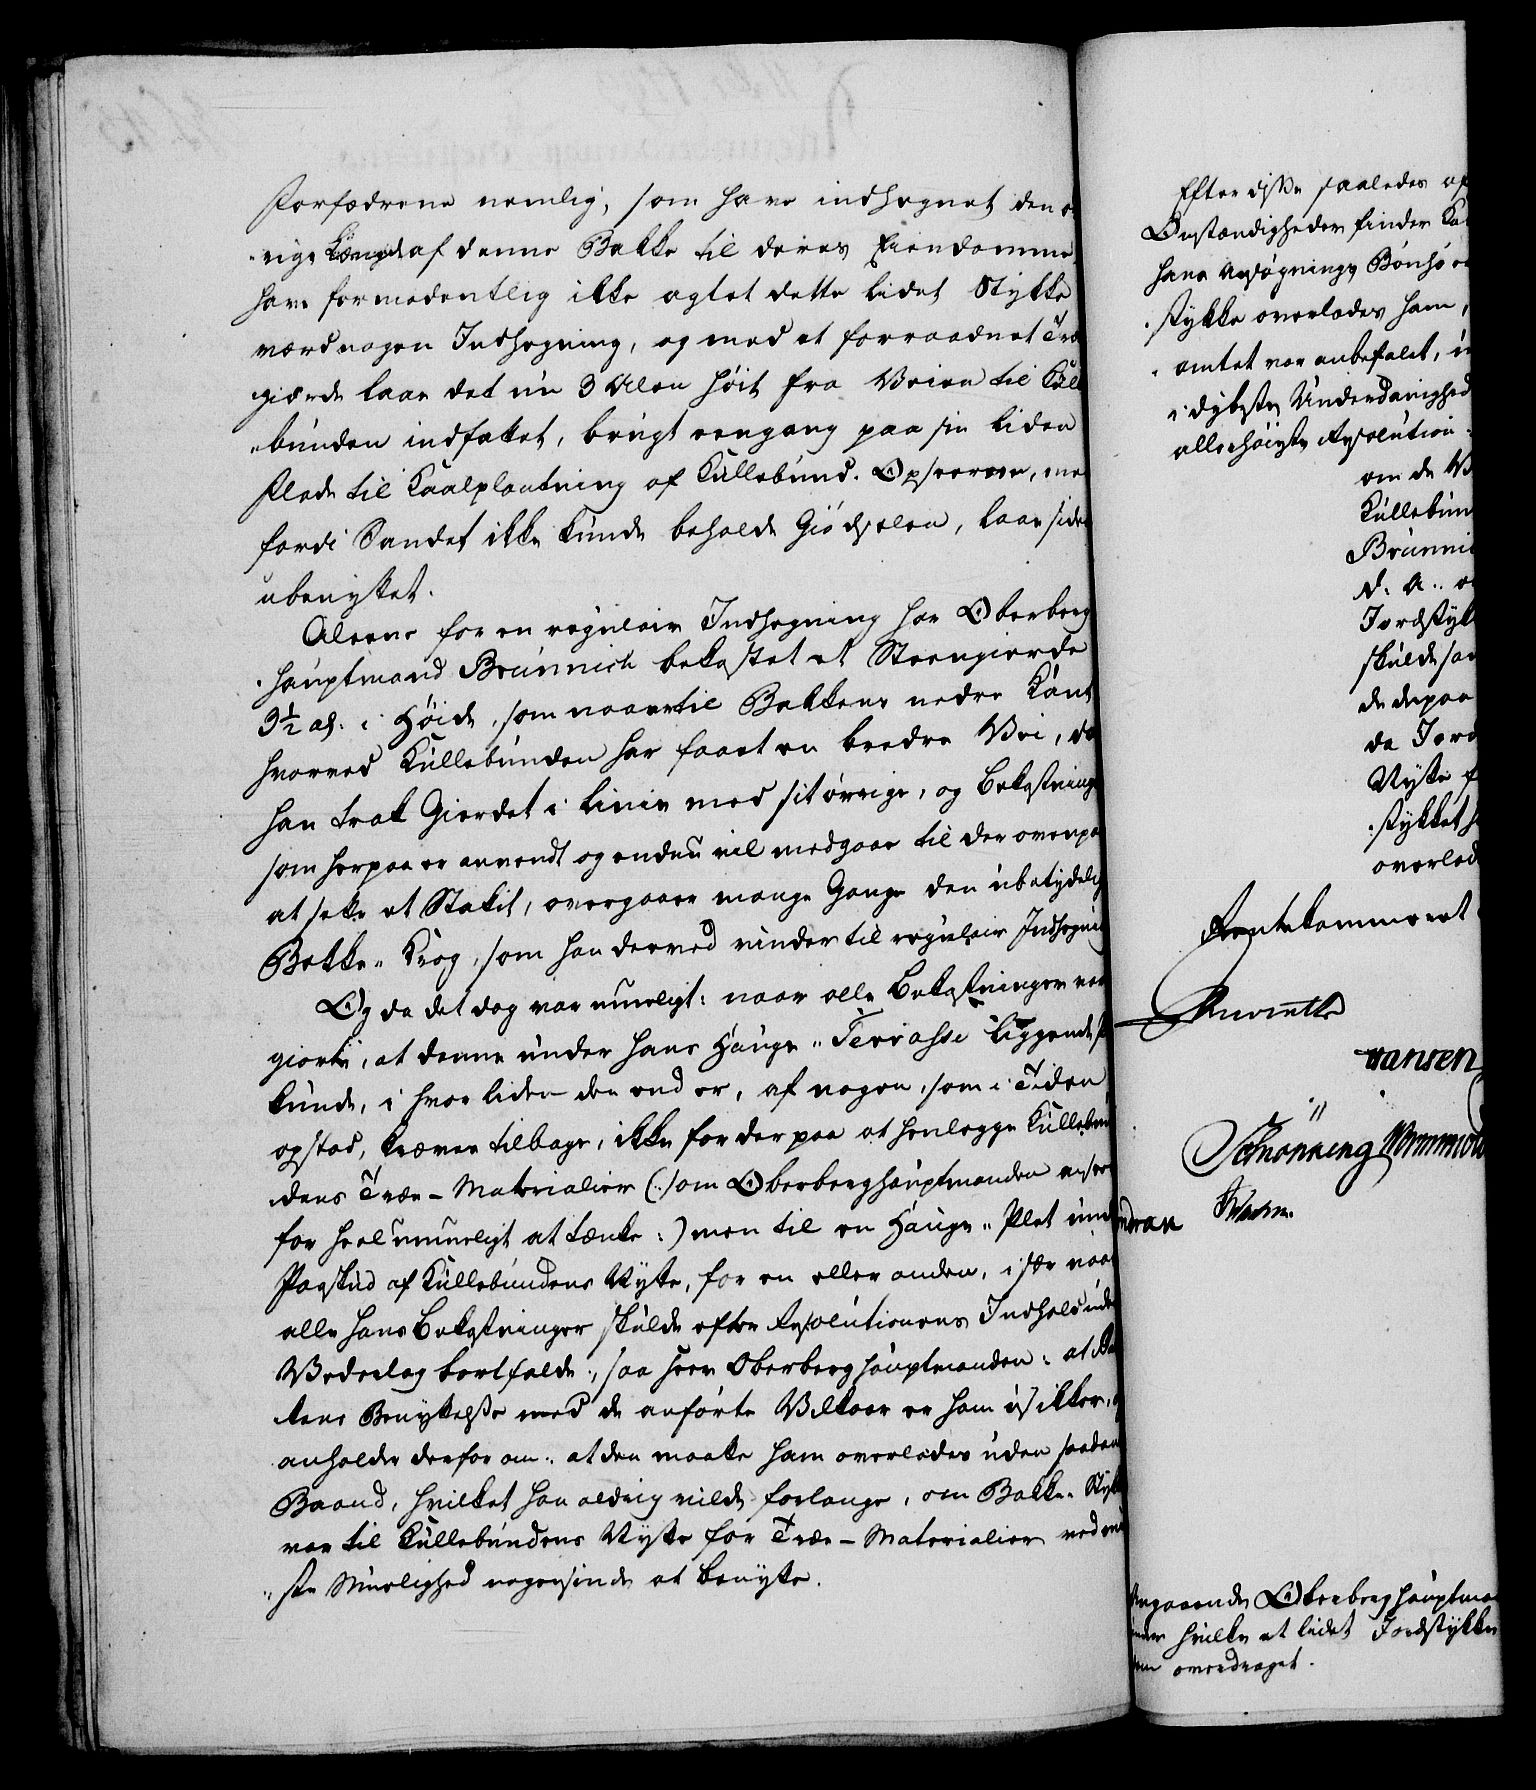 Forfædrene nemlig, som have indhegnet den ø
-rige Længde af denne Bakke til deres Eiendomme
have formodentlig ikke agtet dette lidet Stykke
værd nogen Indhegning, og med et forraadnet Træ
gierde laae det nu 3 Alen høit fra Veien til Kulle
-bunden indfaldet, brugt eengang paa sin liden
Flade til Kaalplantning af Kullebund-Opseeren, men
fordi Sandet ikke kunde beholde Giødselen, laae siden
ubenyttet.
Alene for en regulair Indhegning har Oberberg
-hauptmand Brünnich bekostet et Steengierde
3½ al. i Høide, som naaer til Bakkens nedre Kant
hvorved Kullebunden har faaet en bredre Vei, da
han trak Gierdet i Linie med sit øvrige, og Bekostninge
som herpaa er anvendt og endnu vil medgaae til der ovenpaa
at sette et Stakit, overgaaer mange Gange den ubetydelig
Bakke-Krog, som han derved vinder til regulair Indhegning
Og da det dog var mueligt: naar alle Bekostninger var
giorte, at denne under hans Hauge-Terrasse liggende F
kunde, i hvor liden den end er, af nogen, som i Tiden
opstod, kræves tilbage, ikke for der paa at henlegge Kullebun
dens Træe-Materialier (:som Oberberghauptmanden anseer
for heel umueligt at tænke:) men til en Hauge-Plet under
Paaskud af Kullebundens Nytte, for en eller anden, især naar
alle hans Bekostninger skulde efter Resolutionens Indhold uden
Vederlag bortfalde, saa seer Oberberghauptmanden: at Bak
kens Benyttelse med de anførte Vilkaar er ham usikker, og
anholder derfor om: at den maatte ham overlades uden saadan
Baand, hvilket han aldrig vilde forlange, om Bakke-Stykket
var til Kullebundens Nytte for Træe-Materialier ved mind
-ste Muelighed nogensinde at benytte.
Efter disse saaledes op
Omstændigheder finder Ka
hans Ansøgning
stykke overlades ham,
amtet var anbefalet, i
i dybeste Underdanighed
allerhøieste Resolution:
om de
Kullebun
Brünni
Jordstyk
skulde
de derpaa
da Jord
Nytte f
stykket h
overlad
Rentekammeret
Schønning Wormskiold
Angaaende Oberberghauptma
hvilke et lidet Jordstykke
overdraget.